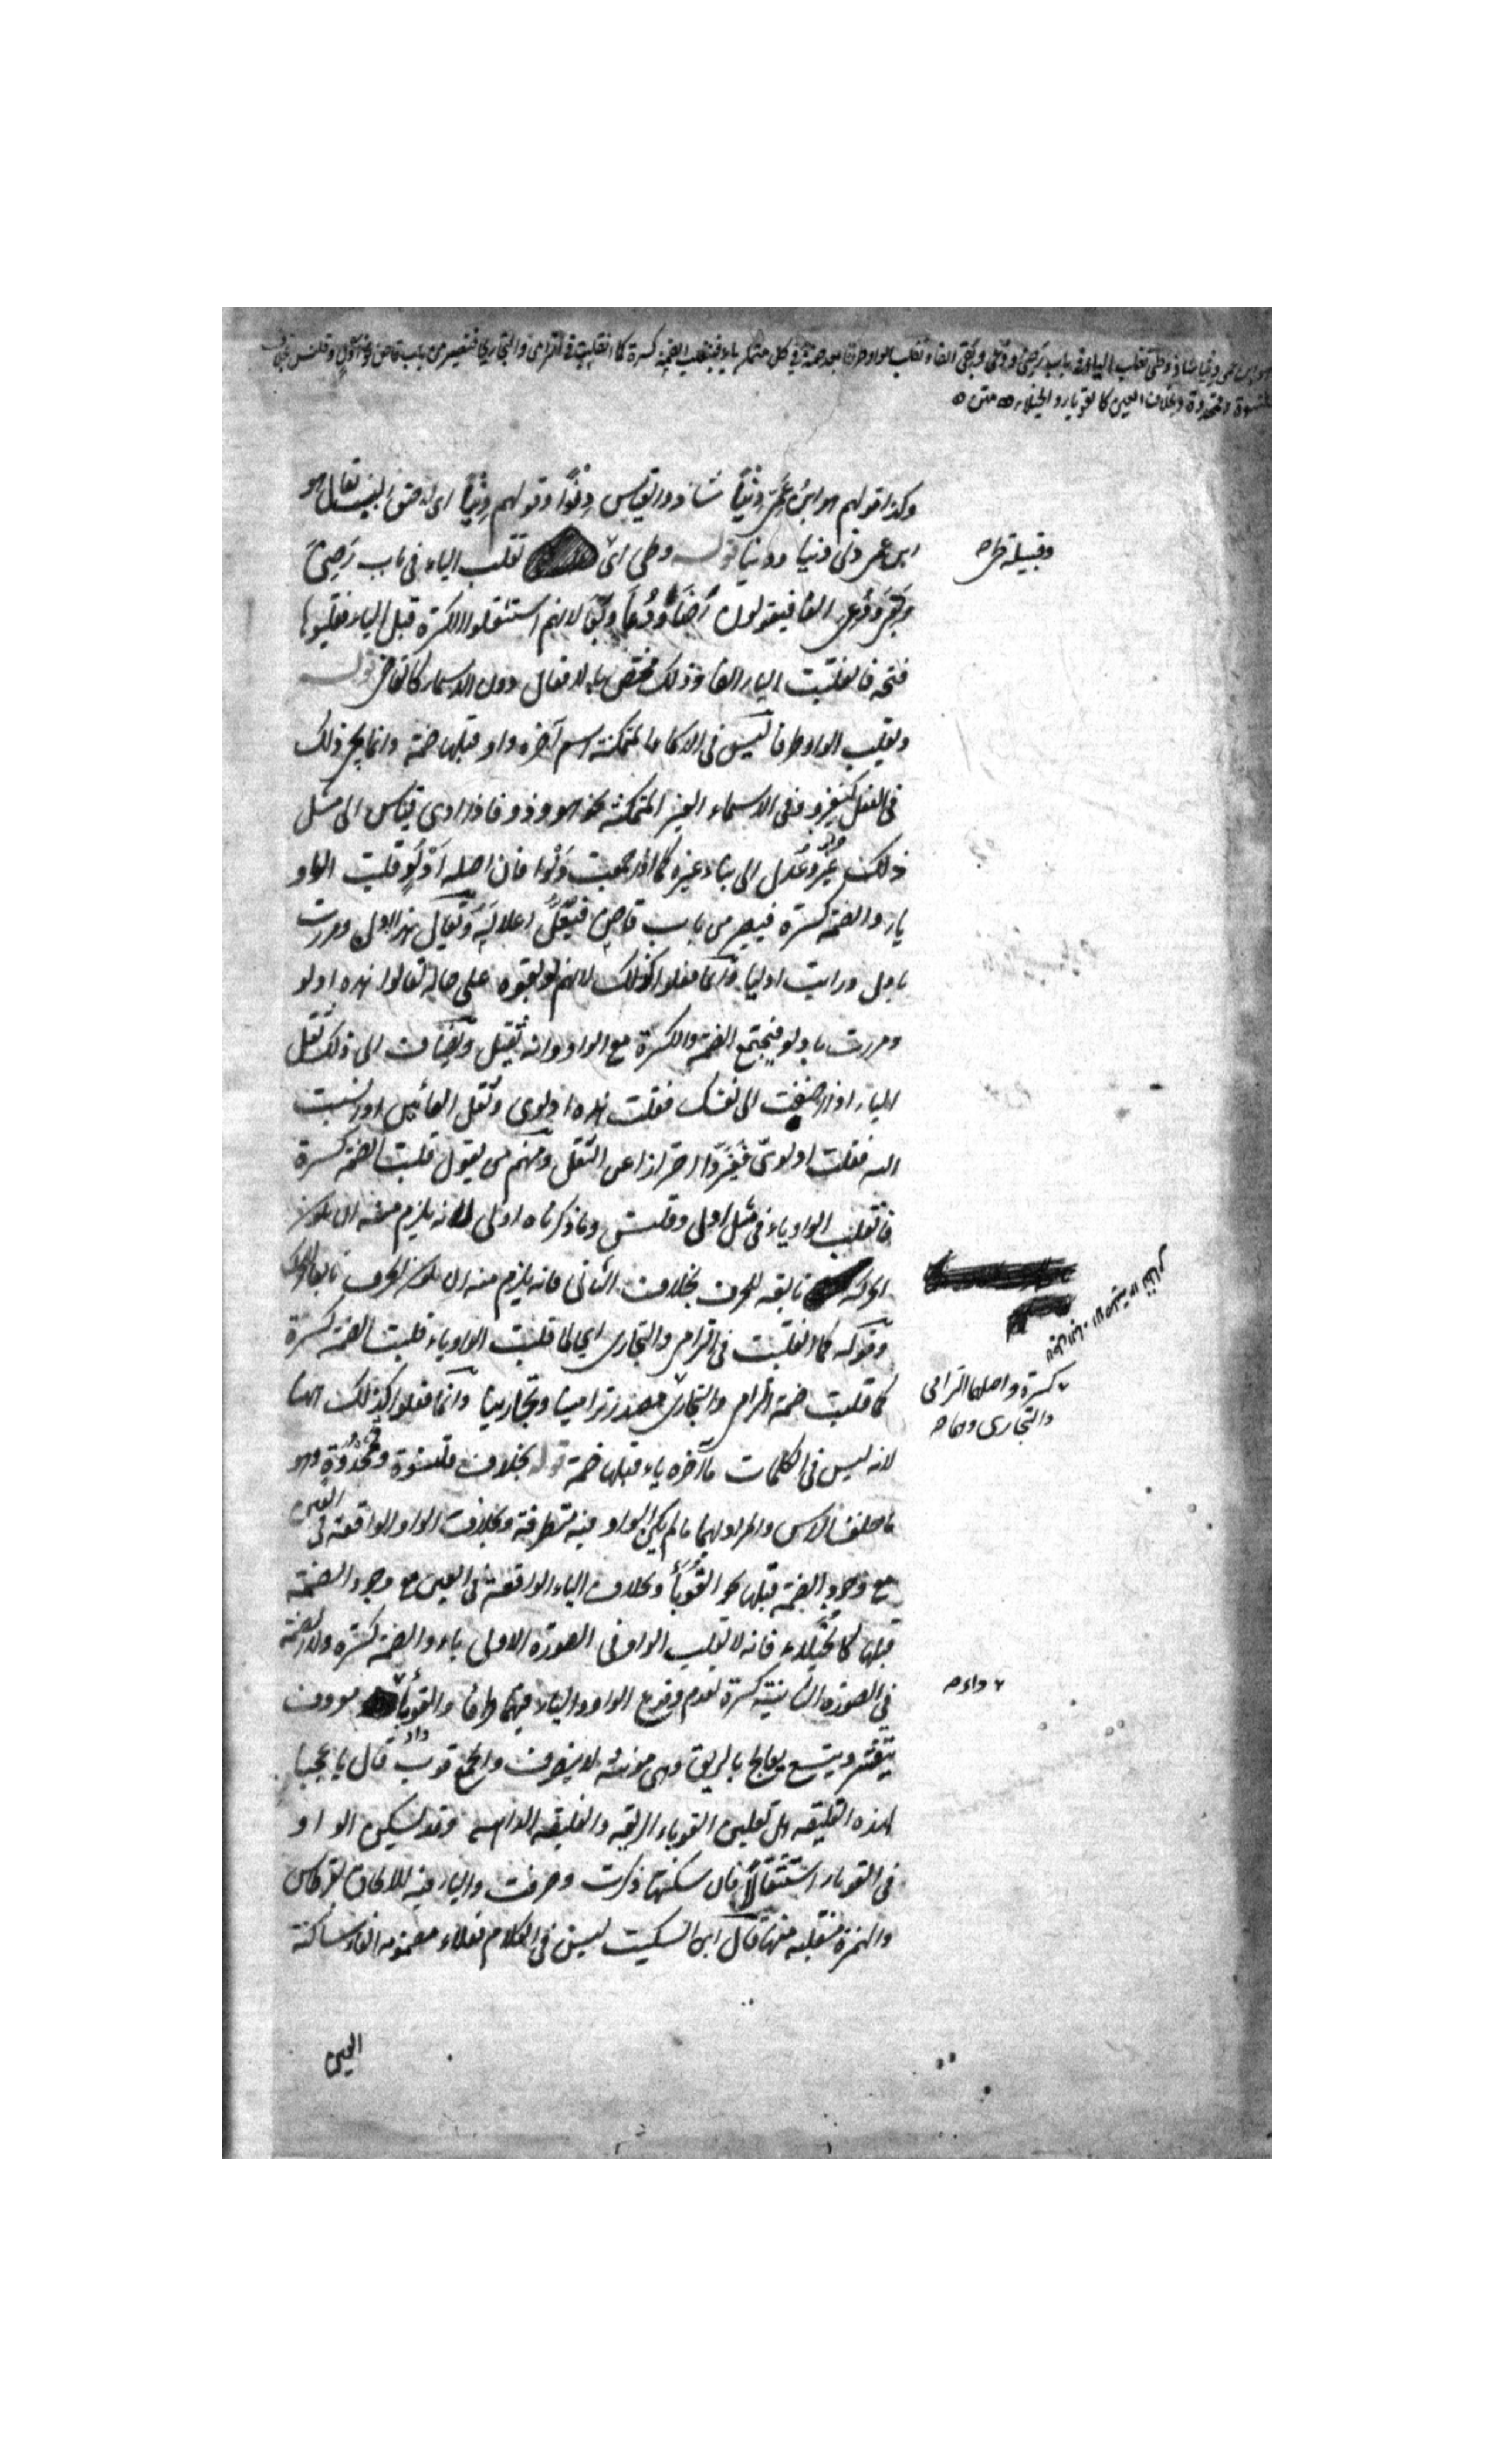 هو ابن عمي دنيا شاذ وطي تقلب الياء في باب رضي وبقي ودعي الفا وتقلب الواو طرفا بعد ضمة في كل متمكن ياء فينقلب الضمة كسرة كما انقلبت في الترامي والتجاري فيصير من باب قاض نحو ادل وقلنس بخلاف
قلنسوة وقمحدوة وبخلاف العين كالقوباء والخيلاء متن
وكذا قولهم هو ابن عمي دنيا شاذ والقياس دنوا وقولهم دنيا اي لاصق النسب يقال هو
ابن عمي دني ودنيا ودنيا قوله وطي اي تقلب الياء في باب رضي
وبقي ودعي الفا فيقولون رضا ودعا وبقا لانهم استثقلوا الكسرة قبل الياء فقلبوها
فتحة فانقلبت الياء الفا وذلك مختص بالافعال دون الاسماء كالقاضي قوله
وتقلب الواو طرفا ليس في الاسماء المتمكنة اسم آخره واو قبلها ضمة وانما يجئ ذلك
في الفعل كيغزو وفي الاسماء الغير المتمكنة نحو هو وذو فاذا ادى قياس الى مثل
ذلك غير وعدل الى بناء غيره كما اذا جمعت دلوا فان اصله ادلو قلبت الواو
ياء والضمة كسرة فيصير من باب قاض فيعل اعلاله ويقال هذا ادل ومررت
بادل ورايت ادليا وانما فعلوا كذلك لانهم لو بقوه على حاله لقالوا هذه ادلو
ومررت بادلو فيجتمع الضمة والكسرة مع الواو وانه ثقيل ويضاف الى ذلك ثقل
الياء اذا اضفت الى نفسك فقلت هذه ادلوي وثقل اليائين اذا نسبت
اليه فقلت ادلوي فغيروا احترازا عن الثقل ومنهم من يقول قلبت الضمة كسرة
فانقلب الواو ياء في مثل ادل وقلنس وما ذكرناه اولى لانه يلزم منه ان يكون
الحركة تابعة للحرف بخلاف الثاني فانه يلزم منه ان يكون الحرف تابعا للحركة
وقوله كما انقلبت في الترامي والتجاري اي لما قلبت الواو ياء قلبت الضمة كسرة
كما قلبت ضمة الترامي والتجاري مصدر ترامينا وتجارينا وانما فعلوا كذلك ههنا
لانه ليس في الكلمات ما آخره ياء قبلها ضمة قوله بخلاف قلنسوة وقمحدوة وهو
ما خلف الراس والمراد بهما ما لم يكن الواو فيه متطرفة وبخلاف الواو الواقعة في العين
مع وجود الضمة قبلها نحو القوباء وبخلاف الياء الواقعة في العين مع وجود الضمة
قبلها كالخيلاء فانه لا تقلب الواو في الصورة الاولى ياء والضمة كسرة ولا الضمة
في الصورة الثانية كسرة لعدم وقوع الواو والياء فيهما طرفا والقوباء معروف
يتقشر ويتسع يعالج بالريق وهي مؤنثة لا ينصرف والجمع قوب قال يا عجبا
لهذه الفليقة هل تغلبن القوباء الريقة والفليقة الداهية وقد تسكن الواو
في القوباء استثقالا فان سكنتها ذكرت وصرفت والياء فيه للالحاق بقرطاس
والهمزة منقلبة منها قال ابن السكيت ليس في الكلام فعلاء مضمومة الفاء ساكنة
العين
وقبيلة طي صح
كسرة واصلهما الترامي
والتجاري وهما صح
داء صح